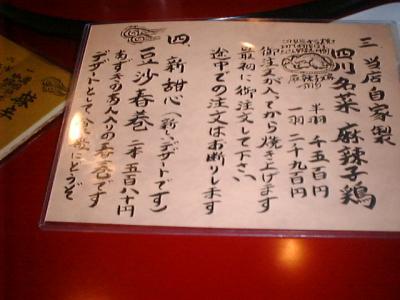 三 当店自家製
四川名菜 麻辣子鶏
半羽 千五百円
一羽 二千九百円
御注文が入ってから焼き上げます
最初に御注文して下さい
途中での注文はお断りします
四 新甜心（新しいデザートです）
豆沙春巻 二本 五百八十円
あずきのあん入りの春巻です
デザートとして
にどうぞ